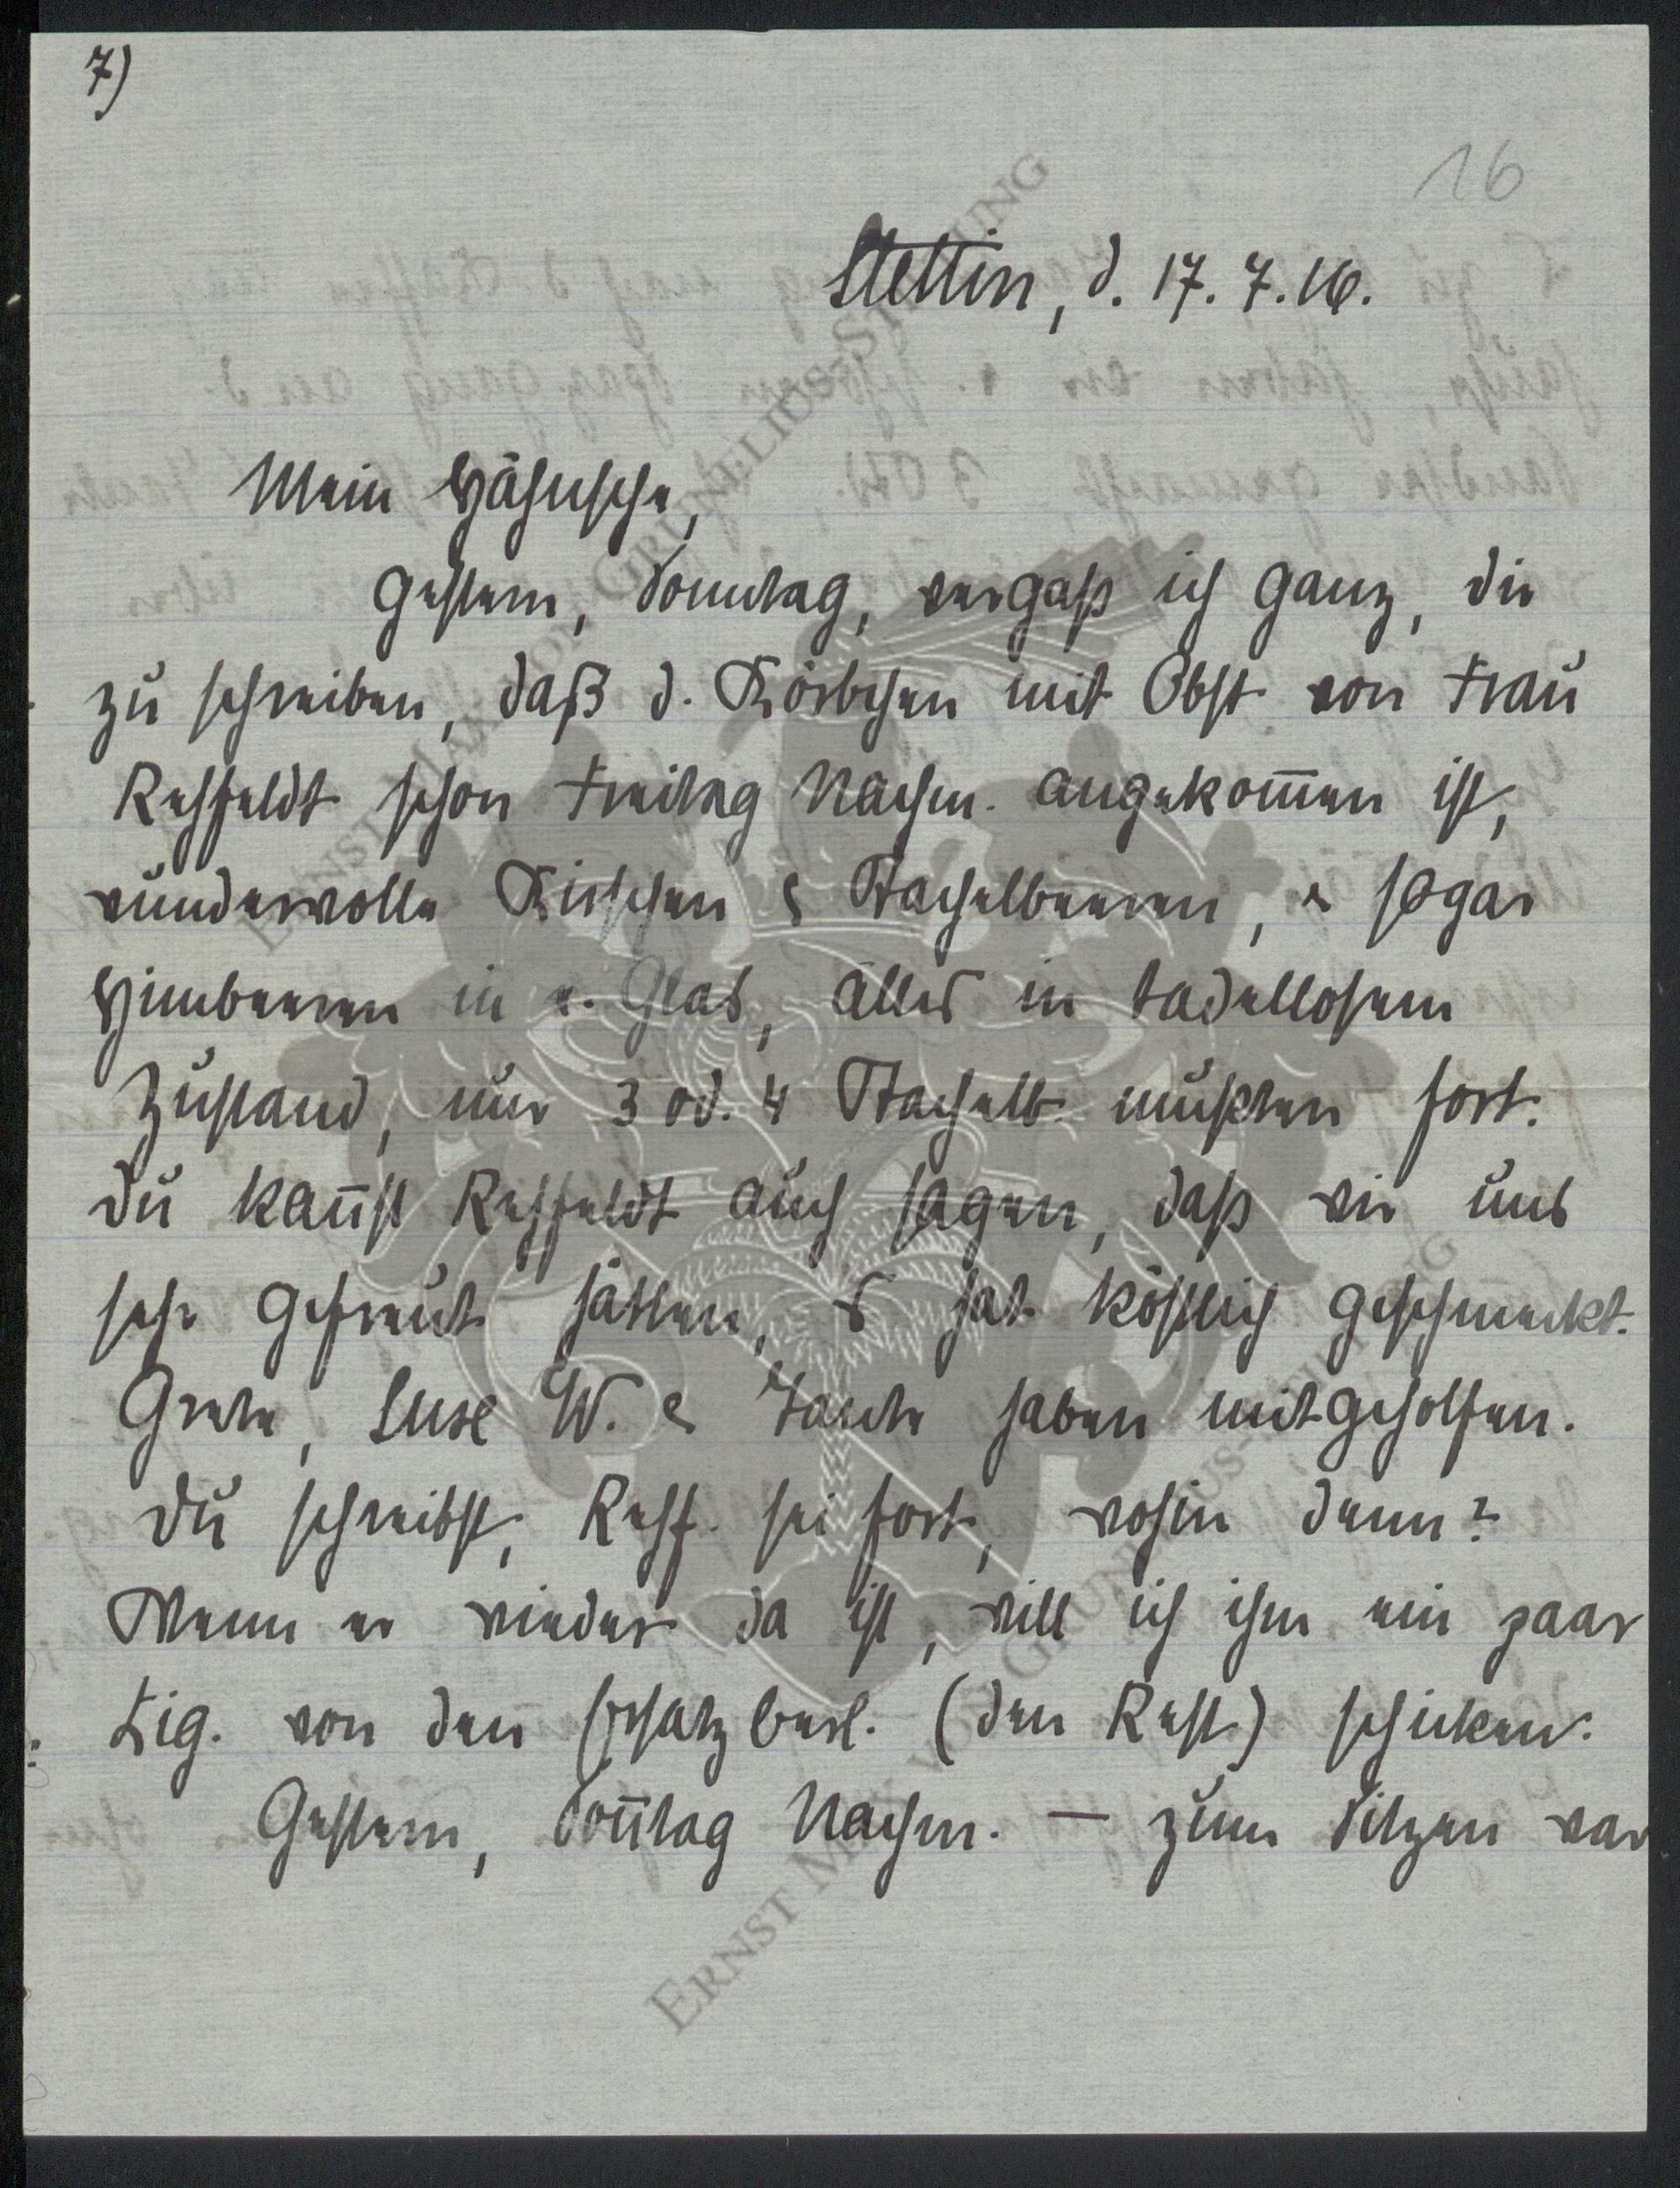 7)
16
Stettin, d. 17. 7. 16.
Mein Hähnsche,
Gestern, Sonntag, vergaß ich ganz, dir
zu schreiben, daß d. Körbchen mit Obst von Frau
Rehfeldt schon Freitag Nachm. angekom̅en ist,
wundervolle Kirschen & Stachelbeeren, & sogar
Himbeeren in e. Glas, alles in tadellosem
Zustand, nur 3 od. 4 Stachelb. mußten fort.
Du kan̅st Rehfeldt auch sagen, daß wir uns
sehr gefreut hätten, es hat köstlich geschmeckt.
Grete, Luse W. & Tante haben mitgeholfen.
Du schreibst, Rehf. sei fort, wohin denn?
Wenn er wieder da ist, will ich ihm ein paar
Zig. von den (den Rest) schicken.
Gestern, Son̅tag Nachm. — zum Sitzen war
ERNST MAX VON GRUNELIUS-STIFTUNG
ERNST MAX VON GRUNELIUS-STIFTUNG